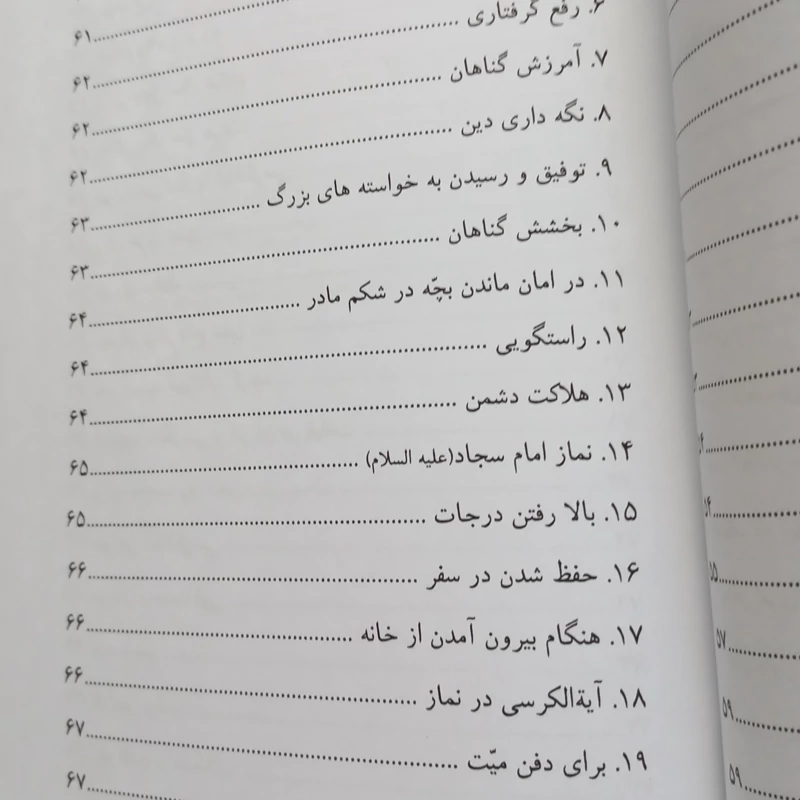 ۶۱
۶. رفع گرفتاری ۶۲
۷. آمرزش گناهان ۶۲
۸. نگه داری دین ۶۲
۹. توفیق و رسیدن به خواسته های بزرگ ۶۳
۱۰. بخشش گناهان ۶۳
۱۱. در امان ماندن بچّه در شکم مادر ۶۴
۱۲. راستگویی ۶۴
۱۳. هلاکت دشمن ۶۴
۱۴. نماز امام سجاد(علیه السلام) ۶۵
۱۵. بالا رفتن درجات ۶۵
۱۶. حفظ شدن در سفر ۶۶
۱۷. هنگام بیرون آمدن از خانه ۶۶
۱۸. آیةالکرسی در نماز ۶۶
۱۹. برای دفن میّت ۶۷
۶۷
۵۷
۵۹
۵۹